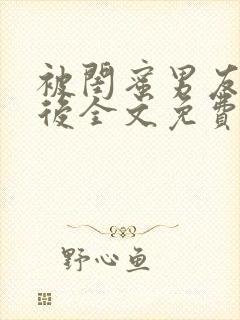 被閨蜜男友
後全文免費
野心鱼